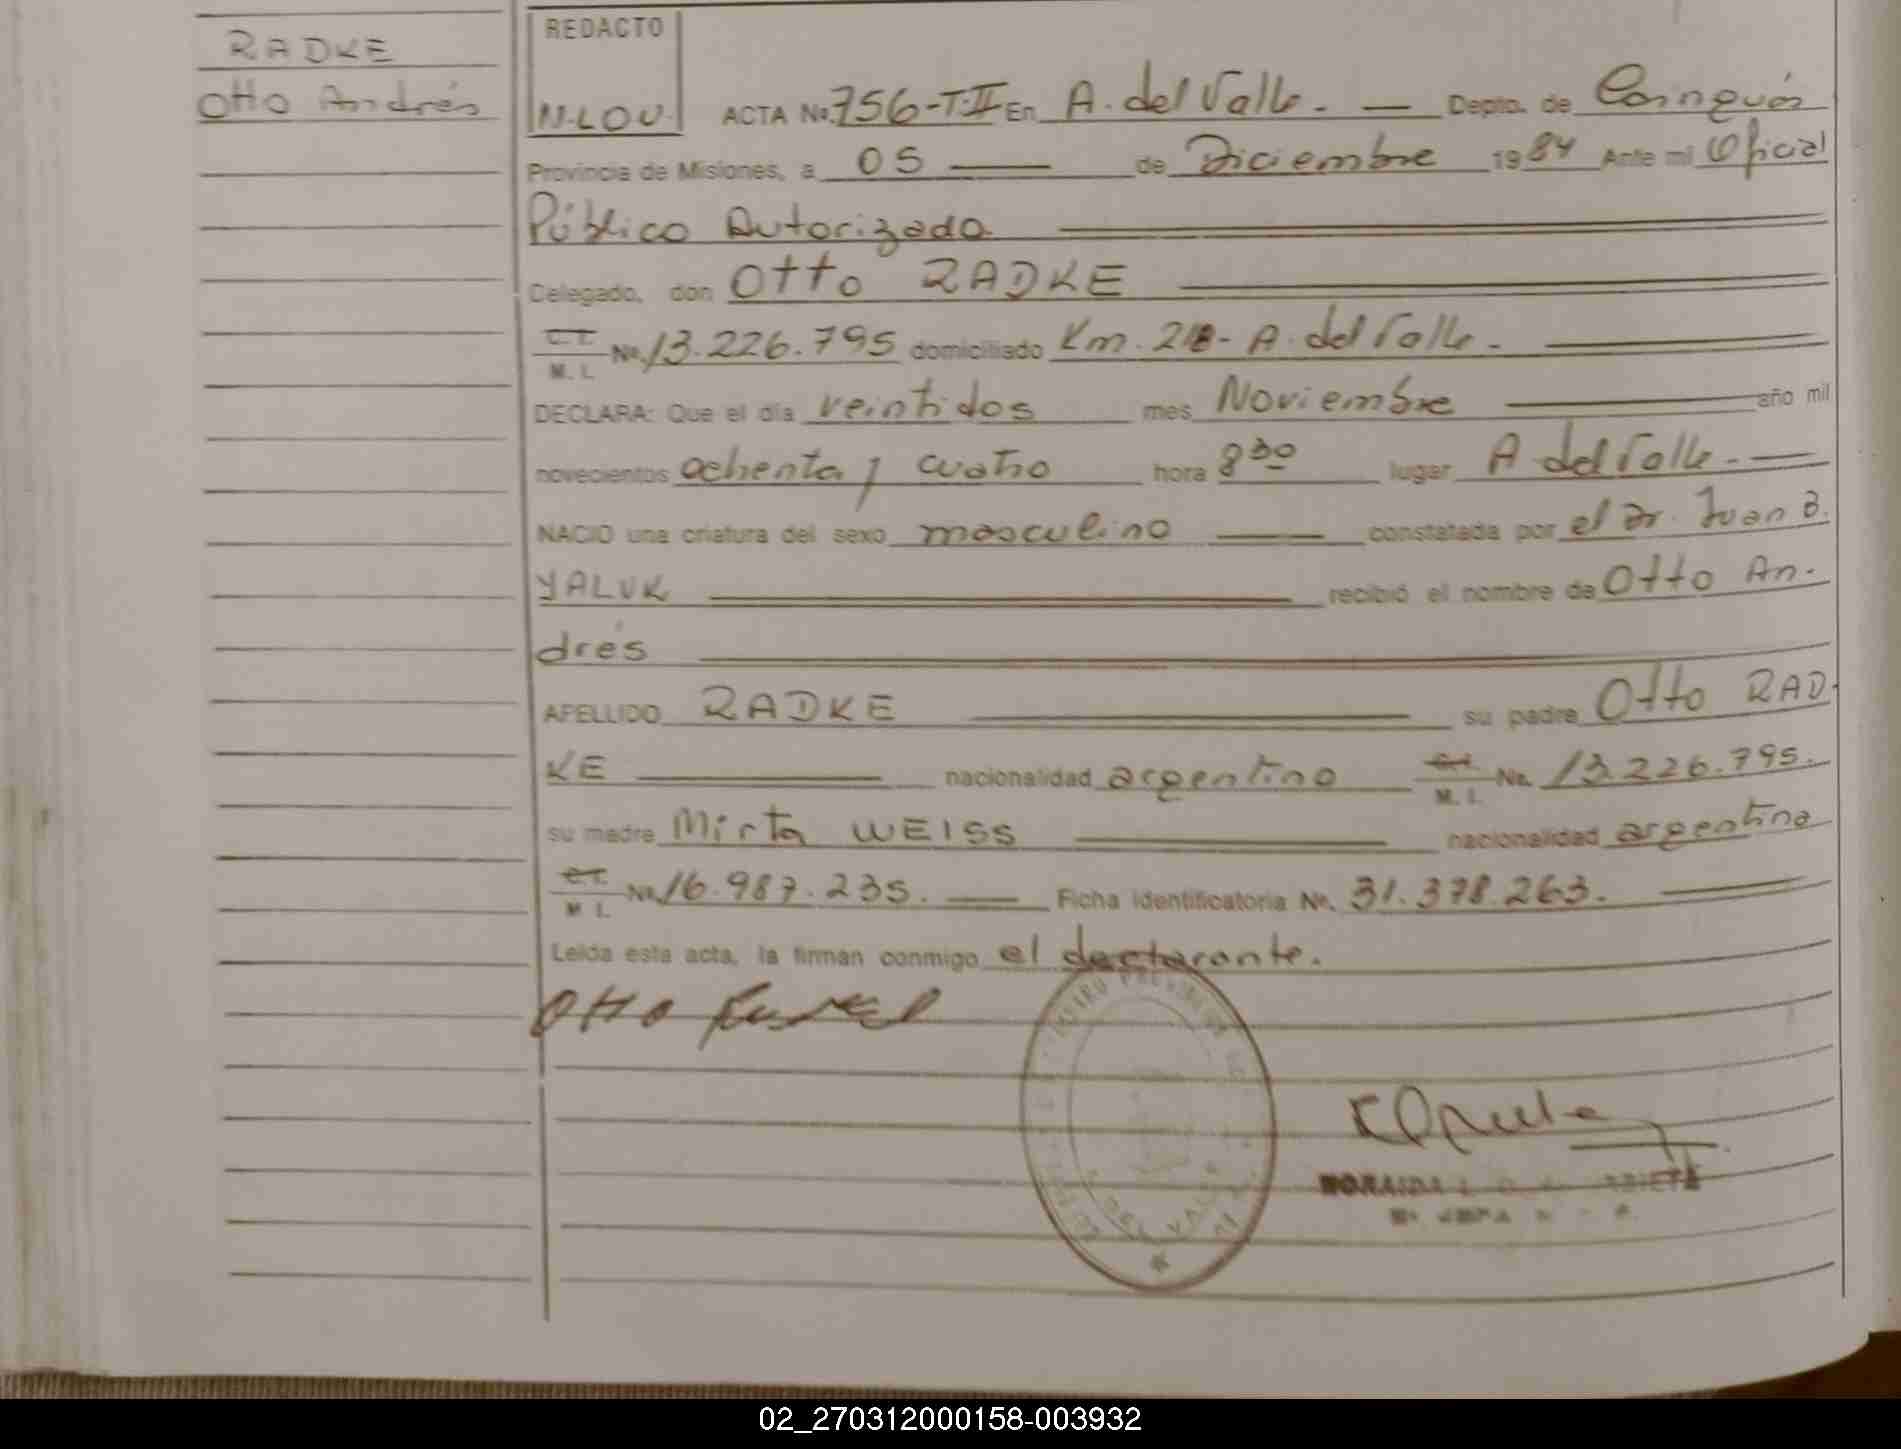 RADKE
Otto Andrés
REDACTO
N.LOV.
ACTA No. 756-T.II En A. del Valle. — Depto. de Cainguás
Provincia de Misiones, a 05 — de Diciembre 1984 Ante mi Oficial
Público Autorizado
Delegado, don Otto RADKE
C.I. M. I. No. 13.226.795 domiciliado Km. 218 - A. del Valle. -
DECLARA: Que el día veintidos mes Noviembre año mil
novecientos ochenta y cuatro hora 8 30 lugar A del Valle. -
NACIO una criatura del sexo masculino constatada por el Dr. Juan B.
YALUK recibió el nombre de Otto An-
drés
APELLIDO RADKE su padre Otto RAD-
KE nacionalidad argentino C.I. M. I. No. 13.226.795.
su madre Mirta WEISS nacionalidad argentina
C.I. M. I. No. 16.987.235. — Ficha Identificatoria No. 31.378.263.
Leida esta acta, la firman conmigo el declarante.
Otto
DEL VALLE
02_270312000158-003932